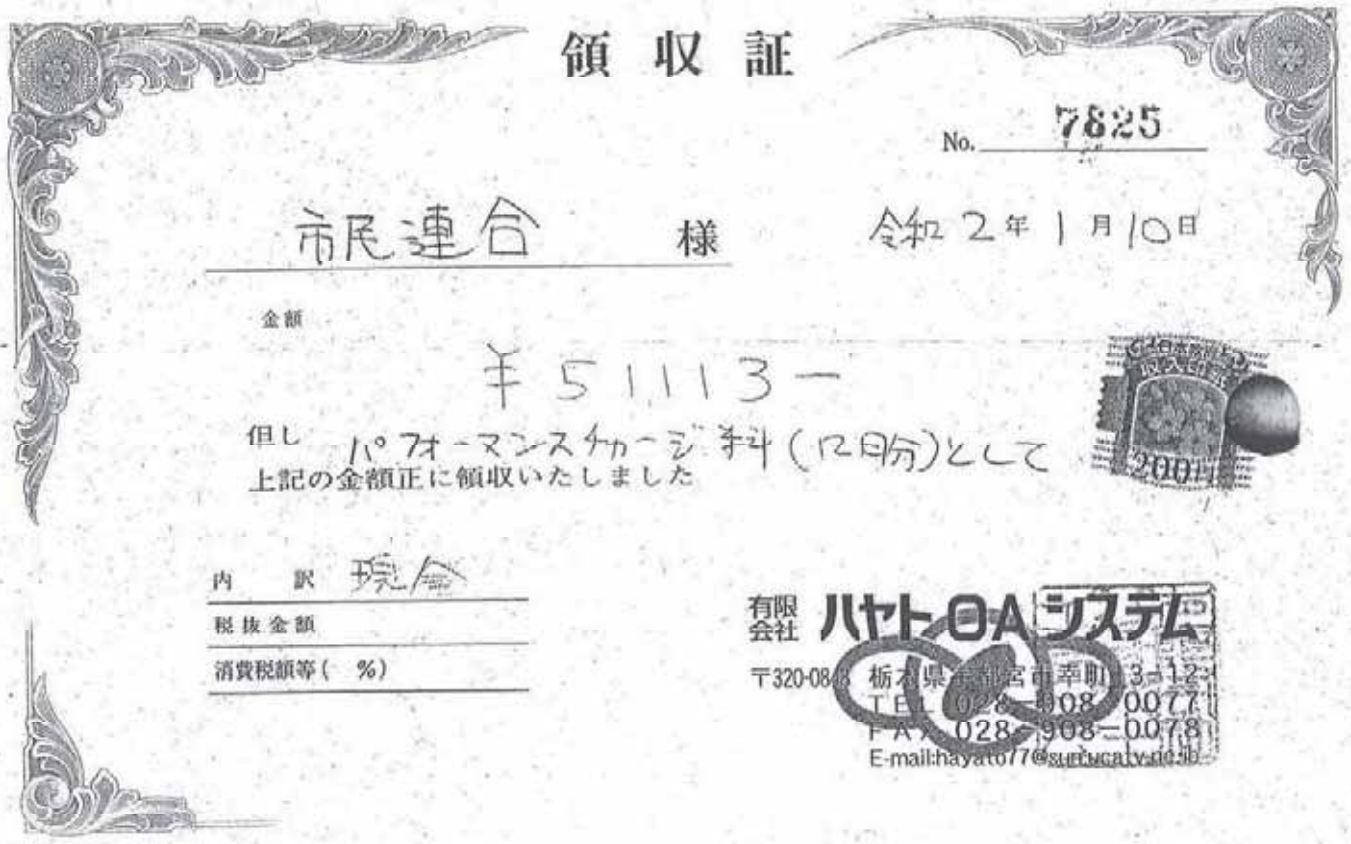 領収証
No. 7825
市民連合 様
令和2年1月10日
金額
¥51,113-
但し パフォーマンスチャージ料(12月分)として
上記の金額正に領収いたしました
収入印紙
200円
内訳 現金
税抜金額
消費税額等( %)
有限会社 ハヤトOAシステム
〒320-0843 栃木県宇都宮市幸町13-12
TEL 028-908-0077
FAX 028-908-0078
E-mail:hayato77@